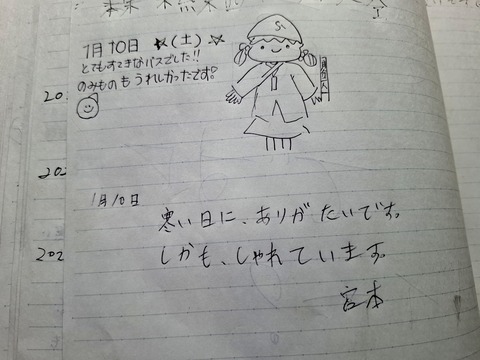 1月10日 ☆(土)☆
とてもすてきなバスでした!!
のみものもうれしかったです。
1月10日
寒い日に、ありがたいです。
しかも、しゃれています。
宮本